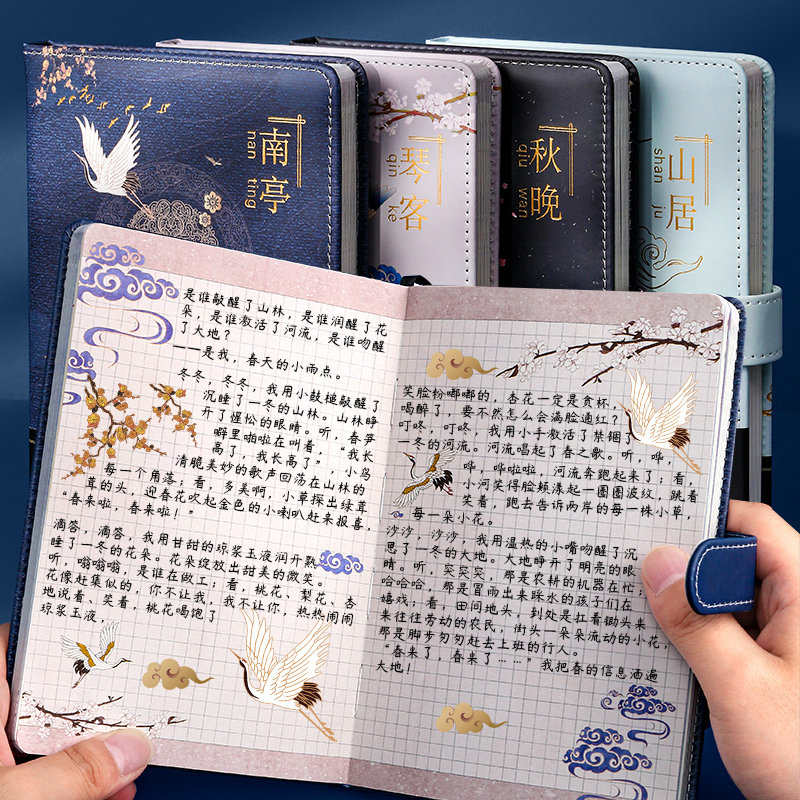 南亭
nan ting
琴客
qin ke
秋晚
qiu wan
山居
shan ju
是谁敲醒了山林，是谁润醒了花
朵，是谁激活了河流，是谁吻醒
了大地？
——是我，春天的小雨点。
冬冬，冬冬，我用小鼓槌敲醒了
沉睡了一冬的山林。山林睁
开了惺忪的眼睛。听，春笋
噼里啪啦在叫着，“我长
高了，我长高了”，小鸟
清脆美妙的歌声回荡在山林的
每一个角落；看，多美啊，小草探出绿茸
茸的头，迎春花吹起金色的小喇叭赶来报喜，
“春来啦，春来啦！”
滴答，滴答，我用甘甜的琼浆玉液润开熟
睡了一冬的花朵。花朵绽放出甜美的微笑。
听，嗡嗡嗡，是谁在做工；看，桃花、梨花、杏
花像赶集似的，你不让我，我不让你，热热闹闹
地说着、笑着，桃花喝饱了
琼浆玉液，
笑脸粉嘟嘟的，杏花一定是贪杯，
喝醉了，要不然怎么会满脸通红？
叮咚，叮咚，我用小手激活了禁锢了
一冬的河流。河流唱起了春之歌。听，哗，
哗，哗啦啦，河流奔跑起来了；看，
小河笑得脸颊漾起一圈圈波纹，跳着
笑着，跑去告诉两岸的每一株小草，
每一朵小花。
沙沙，沙沙，我用温热的小嘴吻醒了沉
思了一冬的大地。大地睁开了明亮的眼
睛。听，突突突，那是农耕的机器在忙；
哈哈哈，那是冒雨出来踩水的孩子们在
嬉戏；看，田间地头，到处是扛着锄头来
来往往劳动的农民，街头一朵朵流动的小花，
那是脚步匆匆赶去上班的行人。
“春来了，春来了……”我把春的信息洒遍
大地！